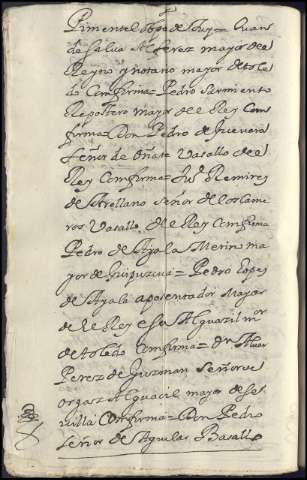 Pimentel obpo de Tuy = Juan
de Salua Alferez mayor del
Reyno y notario mayor de tole
do Comfirma = Pedro Sarmiento
Repostero mayor de el Rey Com
firma = Don Pedro de Gueuara
señor de Oñate Vasallo de el
Rey Comfirma = Ju.º Remirez
de Arellano Señor de los Came
ros Vasallo de el Rey Comfirma
Pedro de Ayala Merino ma
yor de Guipuzcua = Pedro Lopez
de Ayala aposentador Mayor
de el Rey e su Alguazil mor
de toledo Comfirma = dn Aluar
Perez de Guzman Señor de
orgaz Alguacil mayor de Se
uilla Comfirma = Don Pedro
señor de Aguilar Basallo